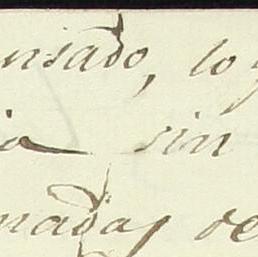 nsado, lo
ia sin
nadas de